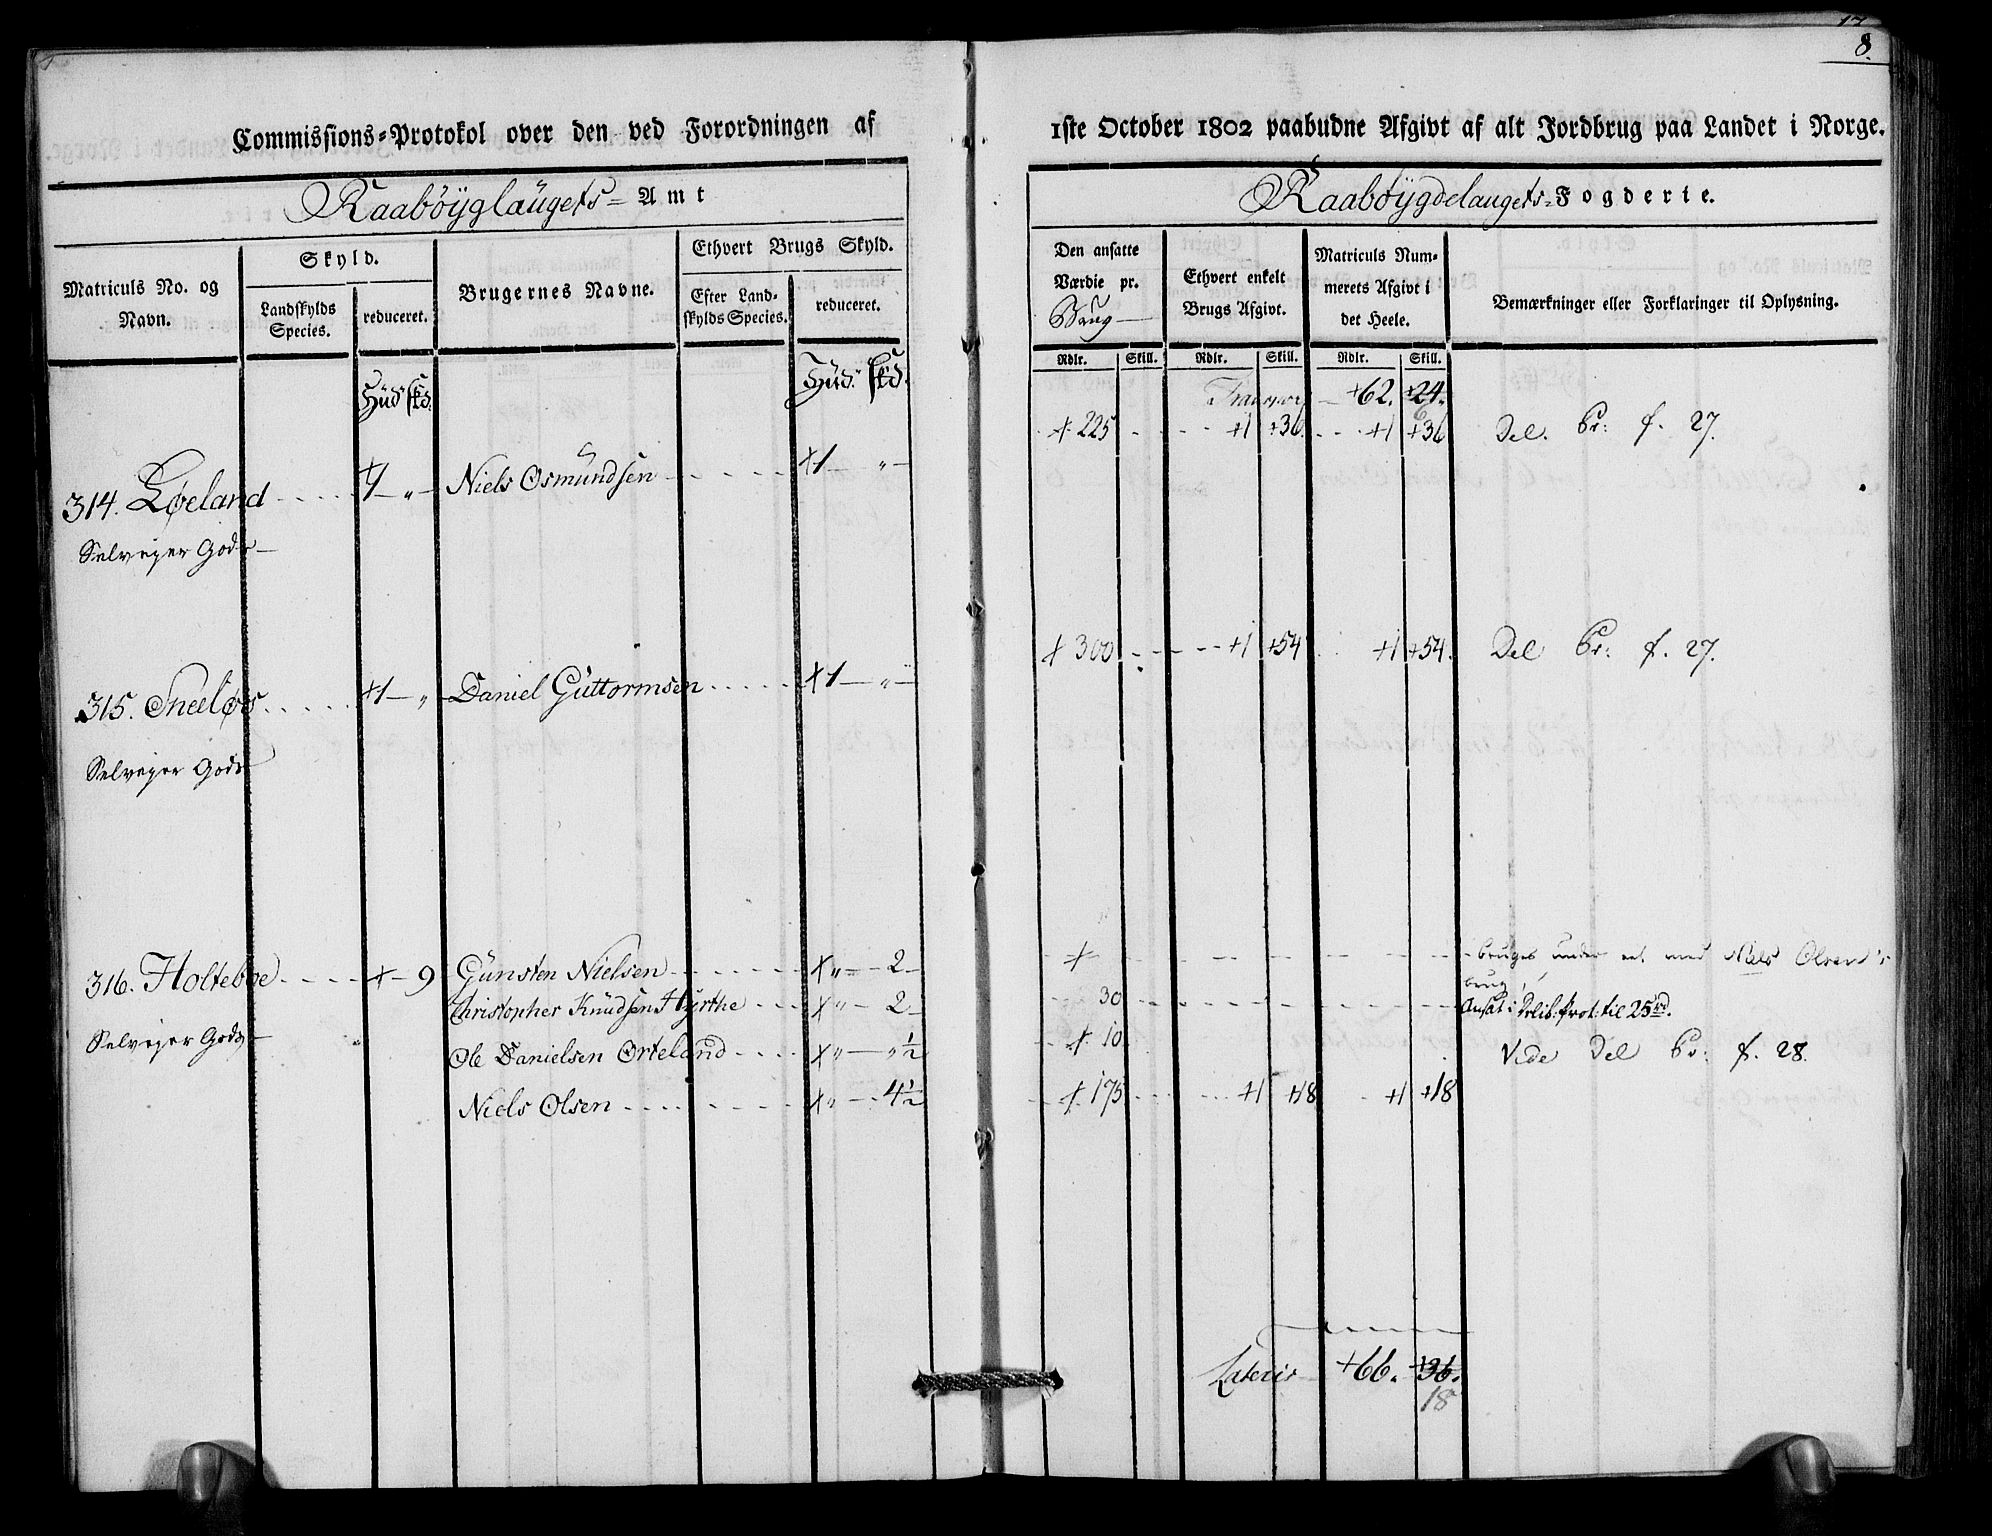 Commissions-Protokol over den ved Forordningen af
Raabøyglaugets- Amt
Matriculs No. og Navn.
Skyld.
Landskylds Species.
reduceret.
Brugernes Navne.
Ethvert Brugs Skyld.
Efter Landskylds Species.
reduceret.
Hüd. skd.
Hüd. skd.
314. Løeland - - - - +1 - „ - Niels Osmundsen - - - - - +1 - „ -
Selveyer Gods -
315. Sneeløs - - - - - +1 - „ - Daniel Guttormsen - - - - - +1 - „ -
Selveyer Gods
316. Holteboe - - - - + - 9 Gunsten Nielsen - - - - - - + „ - 2 -
Christopher Knudsen Hyrthe - - - + „ - 2 -
Selveyer Gods - Ole Danielsen Orteland - - - - + „ - „ ½
Niels Olsen - - - - - - + „ - 4½
17
8.
1ste October 1802 paabudne Afgivt af alt Jordbrug paa Landet i Norge.
Raabøygdelaugets- Fogderie.
Den ansatte Værdie pr. Brug
Ethvert enkelt Brugs Afgivt.
Matriculs Nummerets Afgivt i det Heele.
Bemærkninger eller Forklaringer til Oplysning.
Rdlr. Skill. Rdlr. Skill. Rdlr. Skill.
+62. +24.
6
+ 225 - - - - +1 +36 - - - +1 +36 Del. Pr: f. 27.
+ 300 - - - - +1 +54 +1 +54. Del Pr: f. 27.
+ - - - - - - bruges under et med Niels Olsens
brug
30 - - - - - - Ansat i Delib: prot: til 25rd.
+ 10 Vide Del Pr: f. 28.
+ 175 - - - - +1 +18 - - +1 +18
Lateris +66. +36.
18